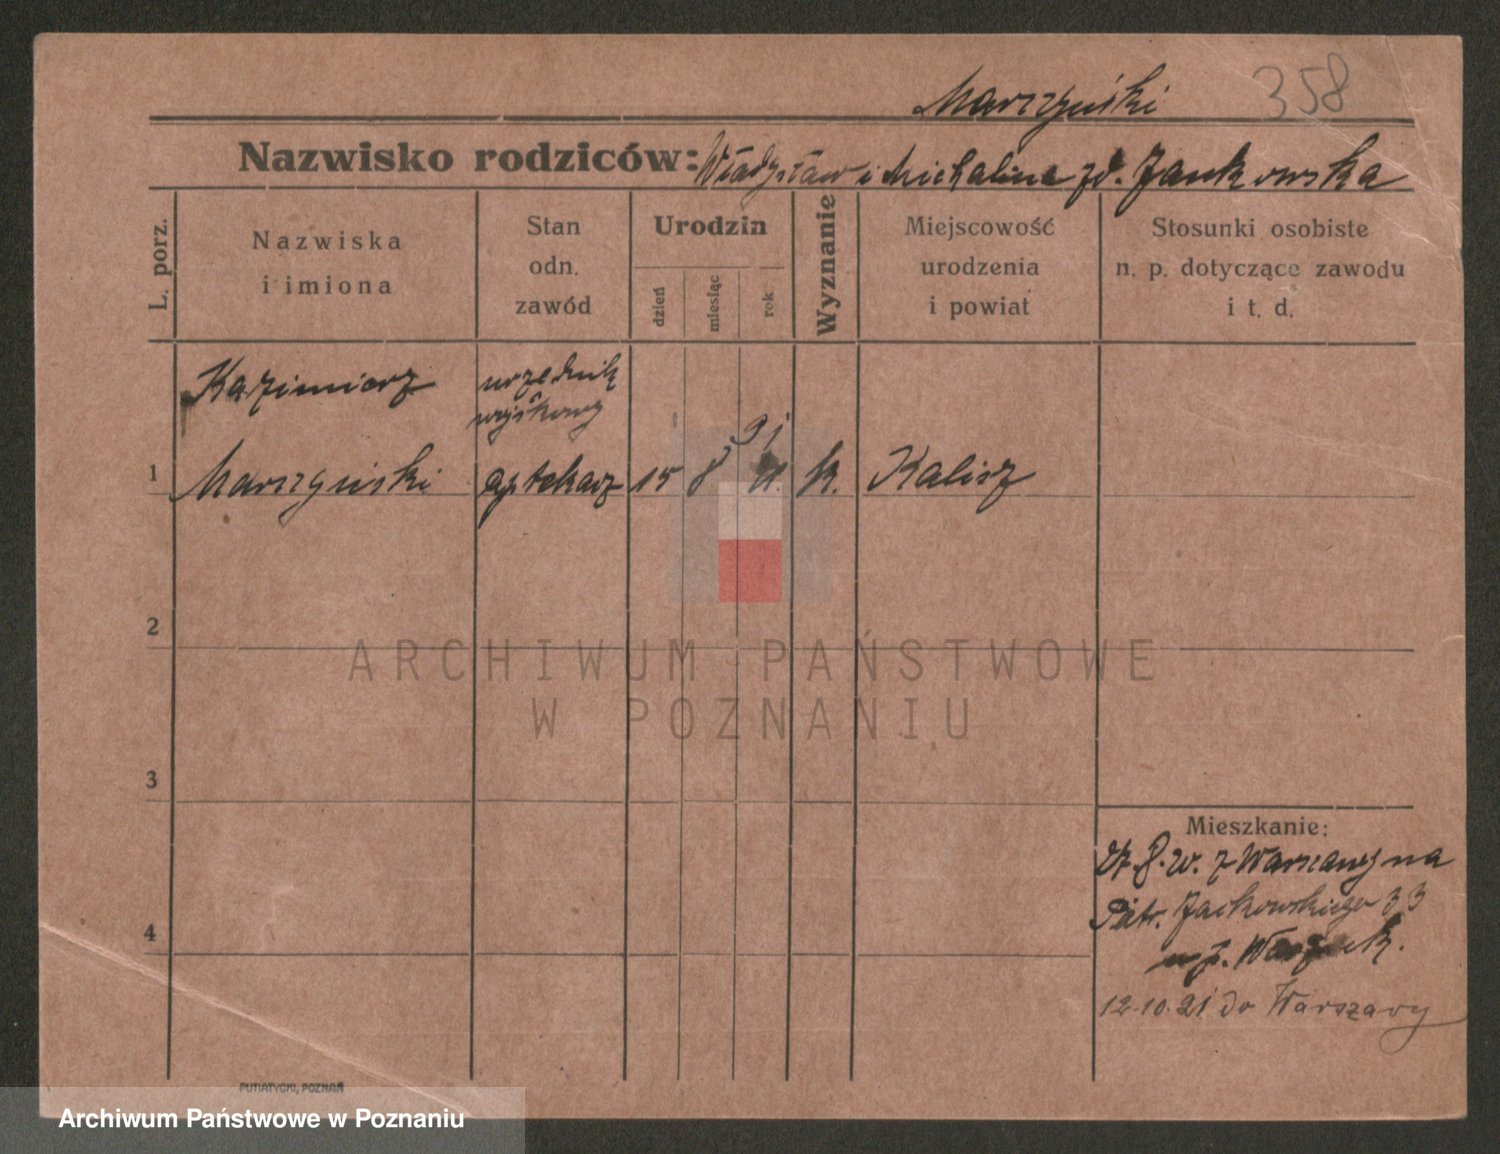 Marszyński 358
Nazwisko rodziców: Władysław i Michalina zd. Jankowska
L. porz.
Nazwiska
i imiona
Stan
odn.
zawód
Urodzin
dzień
miesiąc
rok
Wyznanie
Miejscowość
urodzenia
i powiat
Stosunki osobiste
n. p. dotyczące zawodu
i t. d.
Kazimierz urzędnik
wojskowy
91
1 Marszyński aptekarz 15 8 k. Kalisz
2
ARCHIWUM PAŃSTWOWE
W POZNANIU
3
Mieszkanie:
w. z Warszawy na
Jackowskiego 33
4
12.10.21 do Warszawy
PUTIATYCKI, POZNAŃ
Archiwum Państwowe w Poznaniu